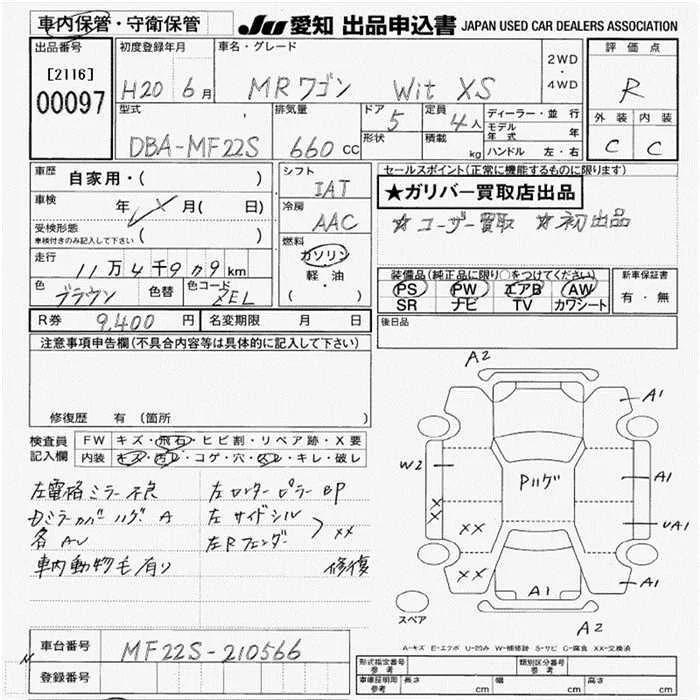 車内保管・守衛保管
JU 愛知 出品申込書 JAPAN USED CAR DEALERS ASSOCIATION
出品番号
[2116]
00097
初度登録年月
H20 6月
車名・グレード
MRワゴン Wit XS
2WD
・
4WD
評価点
R
外装 内装
C C
型式
DBA-MF22S
排気量
660 cc
ドア
5
形状
定員
4人
積載
kg
ディーラー・並行
モデル年式 年
ハンドル 左・右
車歴
自家用・( )
車検
年 月( 日)
受検形態
車検付きのみ記入して下さい ( )
走行
11万4千9
km
色
ブラウン
色替
色コード
ZEL
シフト
IAT
冷房
AAC
燃料
ガソリン
軽・油
( )
セールスポイント(正常に機能するものに限ります)
★ガリバー買取店出品
☆ユーザー買取 ☆初出品
装備品(純正品に限り○をつけてください)
PS PW エアB AW
SR ナビ TV カワシート
新車保証書
有・無
R券 9,400 円
名変期限 月 日
後日品
注意事項申告欄(不具合内容等は具体的に記入して下さい)
修復歴 有 (箇所 )
検査員
記入欄
FW キズ・飛石・ヒビ割・リペア跡・X要
内装 キズ・汚レ・コゲ・穴・スレ・キレ・破レ
左電格ミラー不良
Dミラーカバーハゲ A
各AU
車内動物毛有り
左センターピラーBP
左サイドシル
左Rフェンダー
XX
修復
A2
A1
W2
Pハゲ
A1
X
X
XX
UA1
XX
A1
A1
A2
スペア
A-キズ E-エクボ U-凹み W-補修跡 S-サビ C-腐食 XX-交換済
車台番号
MF22S-210566
登録番号
N
形式指定番号
参考
類別区分番号
参考
車庫証明用
参考
長さ cm
幅 cm
高さ cm